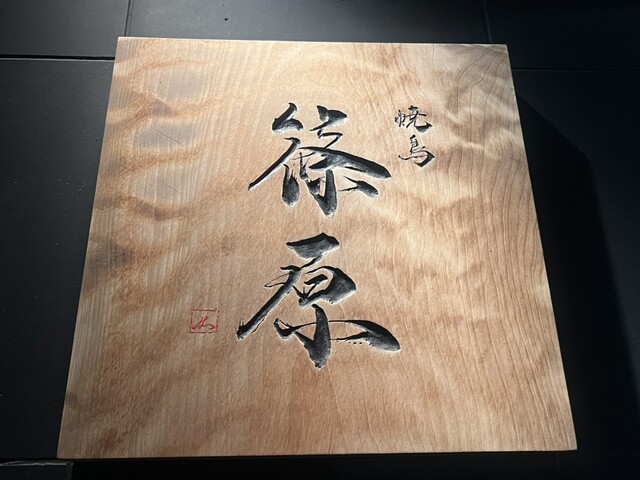 焼鳥
篠原